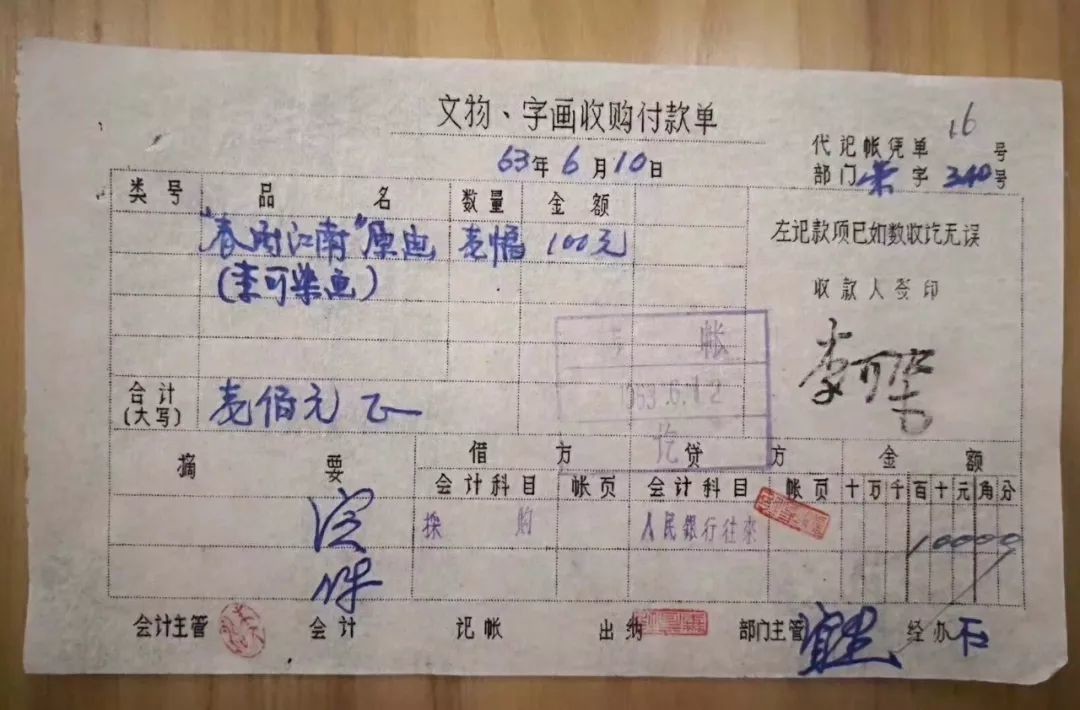 文物、字画收购付款单
16
63年6月10日
代记帐凭单 号
部门荣字340号
类号 品名 数量 金额
"春雨江南"原画 壹幅 100元
(李可染画)
左记款项已如数收讫无误
收款人签印
李可染
帐
1963.6.12
讫
合计
(大写)
壹佰元正
摘要 借方 贷方 金额
会计科目 帐页 会计科目 帐页 十万千百十元角分
採购 人民银行往来 10000
会计主管 会计 记帐 出纳 部门主管 经办